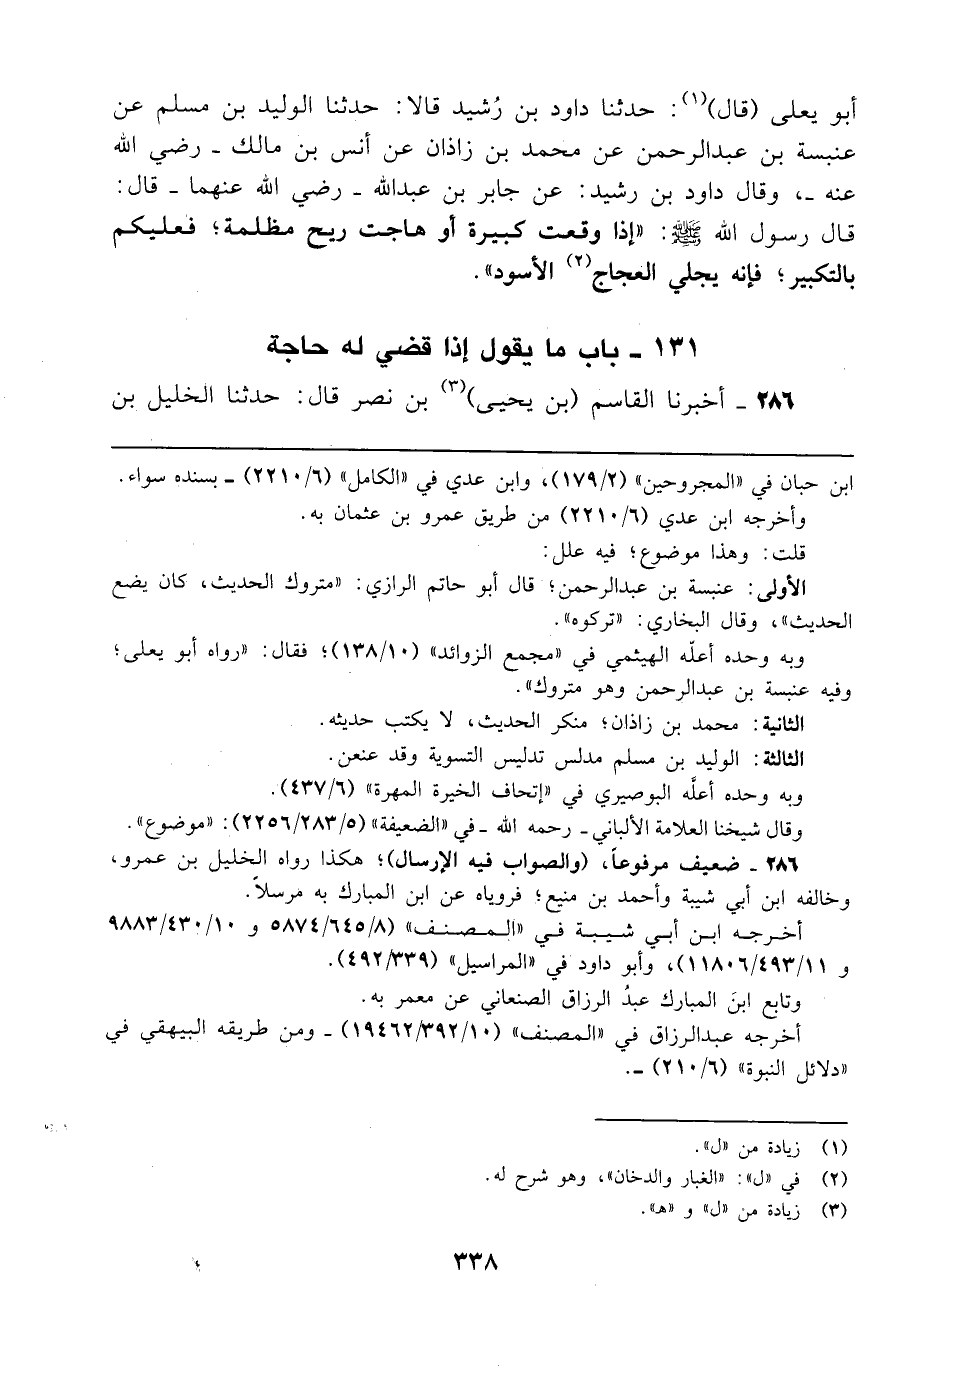 أبو يعلى (قال)(١): حدثنا داود بن رُشيد قالا: حدثنا الوليد بن مسلم عن
عنبسة بن عبدالرحمن عن محمد بن زاذان عن أنس بن مالك ـ رضي الله
عنه ـ، وقال داود بن رشيد: عن جابر بن عبدالله ـ رضي الله عنهما ـ قال:
قال رسول الله ﷺ: «إذا وقعت كبيرة أو هاجت ريح مظلمة؛ فعليكم
بالتكبير؛ فإنه يجلي العجاج(٢) الأسود».
١٣١ ـ باب ما يقول إذا قضي له حاجة
٢٨٦ ـ أخبرنا القاسم (بن يحيى)(٣) بن نصر قال: حدثنا الخليل بن
ابن حبان في «المجروحين» (١٧٩/٢)، وابن عدي في «الكامل» (٢٢١٠/٦) ـ بسنده سواء.
وأخرجه ابن عدي (٢٢١٠/٦) من طريق عمرو بن عثمان به.
قلت: وهذا موضوع؛ فيه علل:
الأولى: عنبسة بن عبدالرحمن؛ قال أبو حاتم الرازي: «متروك الحديث، كان يضع
الحديث»، وقال البخاري: «تركوه».
وبه وحده أعلّه الهيثمي في «مجمع الزوائد» (١٣٨/١٠)؛ فقال: «رواه أبو يعلى؛
وفيه عنبسة بن عبدالرحمن وهو متروك».
الثانية: محمد بن زاذان؛ منكر الحديث، لا يكتب حديثه.
الثالثة: الوليد بن مسلم مدلس تدليس التسوية وقد عنعن.
وبه وحده أعلّه البوصيري في «إتحاف الخيرة المهرة» (٤٣٧/٦).
وقال شيخنا العلامة الألباني ـ رحمه الله ـ في «الضعيفة» (٢٢٥٦/٢٨٣/٥): «موضوع».
٢٨٦ ـ ضعيف مرفوعاً، (والصواب فيه الإرسال)؛ هكذا رواه الخليل بن عمرو،
وخالفه ابن أبي شيبة وأحمد بن منيع؛ فروياه عن ابن المبارك به مرسلاً.
أخرجه ابن أبي شيبة في «المصنف» (٥٨٧٤/٦٤٥/٨ و ٩٨٨٣/٤٣٠/١٠
و ١١٨٠٦/٤٩٣/١١)، وأبو داود في «المراسيل» (٤٩٢/٣٣٩).
وتابع ابنَ المبارك عبدُ الرزاق الصنعاني عن معمر به.
أخرجه عبدالرزاق في «المصنف» (١٩٤٦٢/٣٩٢/١٠) ـ ومن طريقه البيهقي في
«دلائل النبوة» (٢١٠/٦) ـ.
(١) زيادة من «ل».
(٢) في «ل»: «الغبار والدخان»، وهو شرح له.
(٣) زيادة من «ل» و «هـ».
٣٣٨